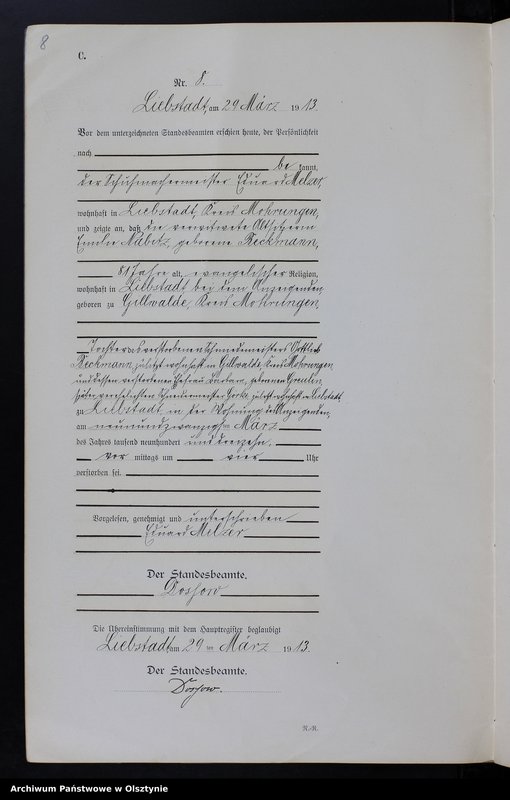 8
C.
Nr. 8.
Liebstadt, am 29 März 1913.
Vor dem unterzeichneten Standesbeamten erschien heute, der Persönlichkeit
nach
bekannt,
der Schuhmachermeister Eduard Melzer,
wohnhaft in Liebstadt, Kreis Mohrungen,
und zeigte an, daß die verwitwete Altsitzerin
Emilie Nabitz, geborene Beckmann,
81 Jahre alt, evangelischer Religion,
wohnhaft in Liebstadt bei dem Anzeigenden
geboren zu Gillwalde, Kreis Mohrungen,
Tochter des verstorbenen Schmiedemeisters Gottlieb
Beckmann, zuletzt wohnhaft in Gillwalde, Kreis Mohrungen
und dessen verstorbenen Ehefrau Barbara, geborenen
zuletzt wohnhaft in Liebstadt
zu Liebstadt in der Wohnung des Anzeigenden,
am neunundzwanzigsten März
des Jahres tausend neunhundert und dreizehn,
vor mittags um vier Uhr
verstorben sei.
Vorgelesen, genehmigt und unterschrieben
Eduard Melzer
Der Standesbeamte.
Die Übereinstimmung mit dem Hauptregister beglaubigt
Liebstadt, am 29 ten März 1913.
Der Standesbeamte.
Archiwum Państwowe w Olsztynie